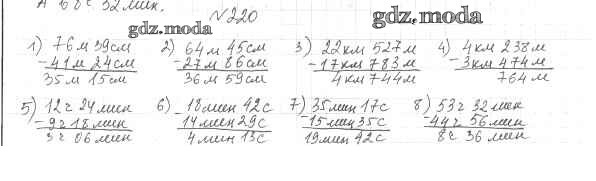 А 6 ч 32 мин.
№220
gdz.moda
gdz.moda
1) 76 м 39 см 2) 64 м 45 см 3) 22 км 527 м 4) 4 км 238 м
- 41 м 24 см - 27 м 86 см - 17 км 783 м - 3 км 474 м
35 м 15 см 36 м 59 см 4 км 744 м 764 м
5) 12 ч 24 мин 6) - 18 мин 42 с 7) 35 мин 17 с 8) 53 ч 32 мин
- 9 ч 18 мин 14 мин 29 с - 15 мин 35 с - 44 ч 56 мин
3 ч 06 мин 4 мин 13 с 19 мин 42 с 8 ч 36 мин